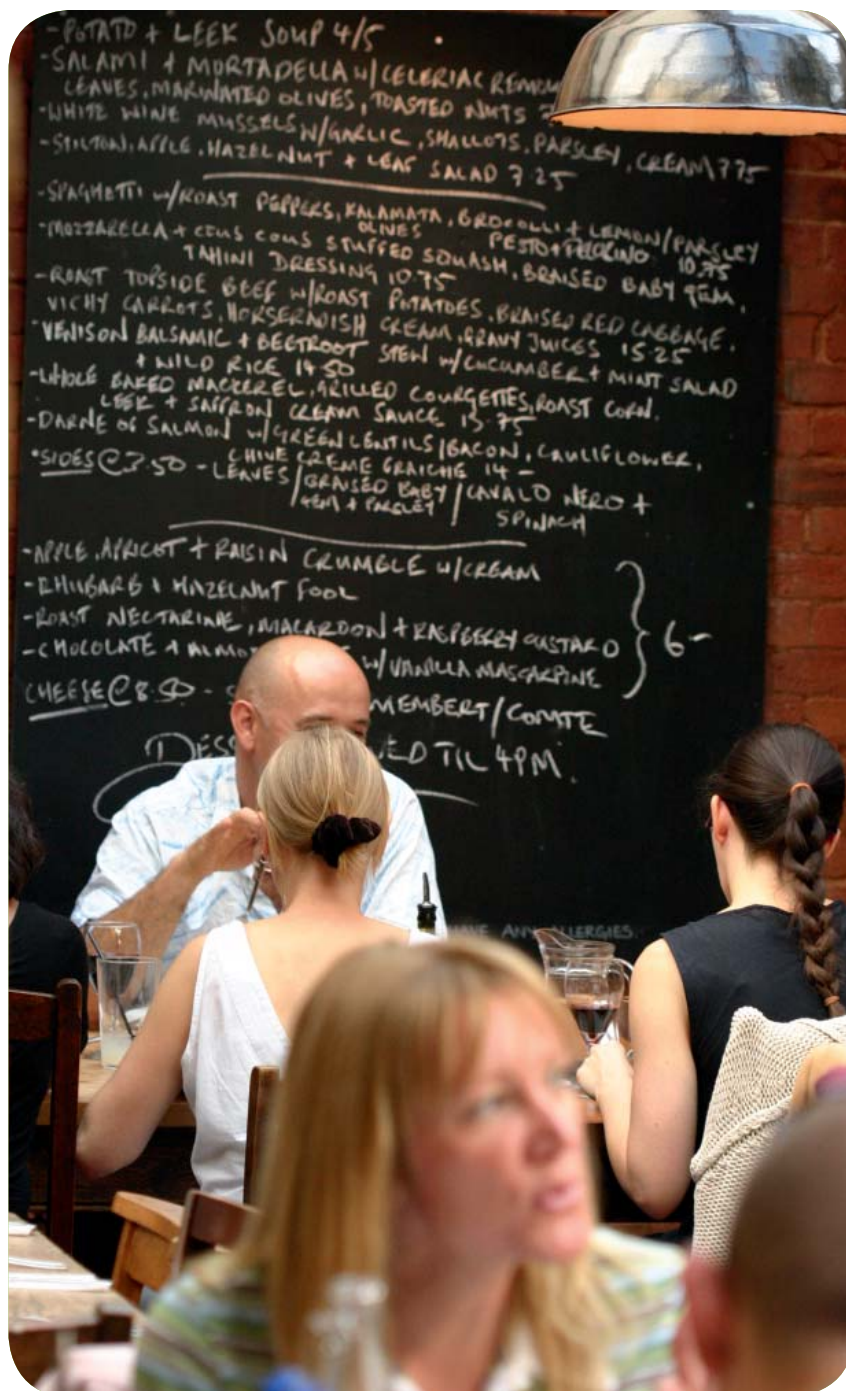 -POTATO + LEEK SOUP 4/5
-SALAMI + MORTADELLA W/CELERIAC
LEAVES, MARINATED OLIVES, TOASTED NUTS
-WHITE WINE MUSSELS W/GARLIC, SHALLOTS, PARSLEY, CREAM 7.75
-STILTON, APPLE, HAZELNUT + LEAF SALAD 7.25
-SPAGHETTI W/ROAST PEPPERS, KALAMATA OLIVES, BROCOLLI + LEMON/PARSLEY
PESTO + PECORINO 10.75
-MOZZARELLA + COUS COUS STUFFED SQUASH, BRAISED BABY GEM,
TAHINI DRESSING 10.75
-ROAST TOPSIDE BEEF W/ROAST POTATOES, BRAISED RED CABBAGE,
VICHY CARROTS, HORSERADISH CREAM, GRAVY JUICES 15.25
-VENISON BALSAMIC + BEETROOT STEW W/CUCUMBER + MINT SALAD
+ WILD RICE 14.50
-WHOLE BAKED MACKEREL, GRILLED COURGETTES, ROAST CORN,
LEEK + SAFFRON CREAM SAUCE 13.75
-DARNE OF SALMON W/GREEN LENTILS/BACON, CAULIFLOWER,
CHIVE CREME FRAICHE 14-
*SIDES @ 3.50 - LEAVES/BRAISED BABY GEM + PARSLEY/CAVALO NERO +
SPINACH
-APPLE, APRICOT + RAISIN CRUMBLE W/CREAM
-RHUBARB + HAZELNUT FOOL
-ROAST NECTARINE, MACAROON + RASPBERRY CUSTARD 6-
-CHOCOLATE + W/VANILLA MASCARPINE
CHEESE @ 8.50 - MEMBERT/COMTE
DESS ED TIL 4PM.
HAVE ANY ALLERGIES